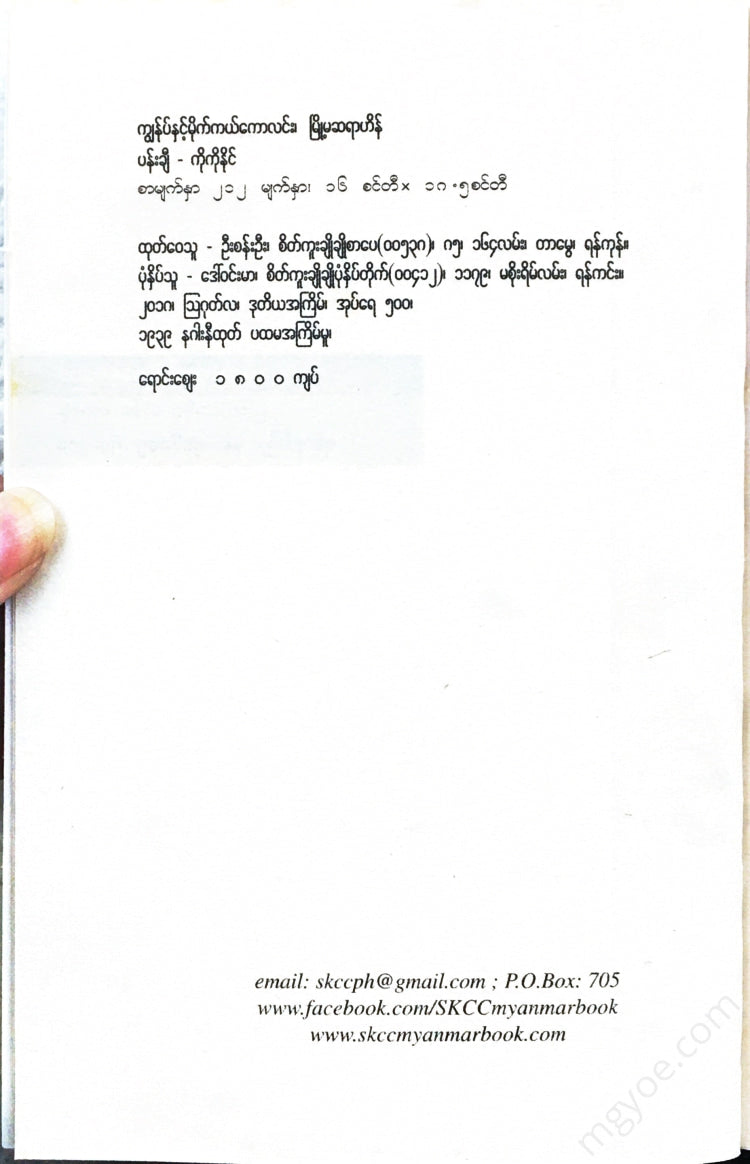 ကျွန်ပ်နှင့်မိုက်ကယ်ကောလင်း၊ မြို့မဆရာဟိန်
ပန်းချီ - ကိုကိုနိုင်
စာမျက်နှာ ၂၁၂ မျက်နှာ၊ ၁၆ စင်တီ× ၁၈.၅စင်တီ
ထုတ်ဝေသူ - ဦးစန်းဦး၊ စိတ်ကူးချိုချိုစာပေ(၀၀၅၃၈)၊ ၈၅၊ ၁၆၄လမ်း၊ တာမွေ၊ ရန်ကုန်။
ပုံနှိပ်သူ - ဒေါ်ဝင်းမာ၊ စိတ်ကူးချိုချိုပုံနှိပ်တိုက်(၀၀၄၁၂)၊ ၁၁၇၉၊ မစိုးရိမ်လမ်း၊ ရန်ကင်း။
၂၀၁၈၊ ဩဂုတ်လ၊ ဒုတိယအကြိမ်၊ အုပ်ရေ ၅၀၀၊
၁၉၃၉ နဂါးနီထုတ် ပထမအကြိမ်မူ၊
ရောင်းဈေး ၁ ၈ ၀ ၀ ကျပ်
email: skccph@gmail.com ; P.O.Box: 705
www.facebook.com/SKCCmyanmarbook
www.skccmyanmarbook.com
mgyoe.com